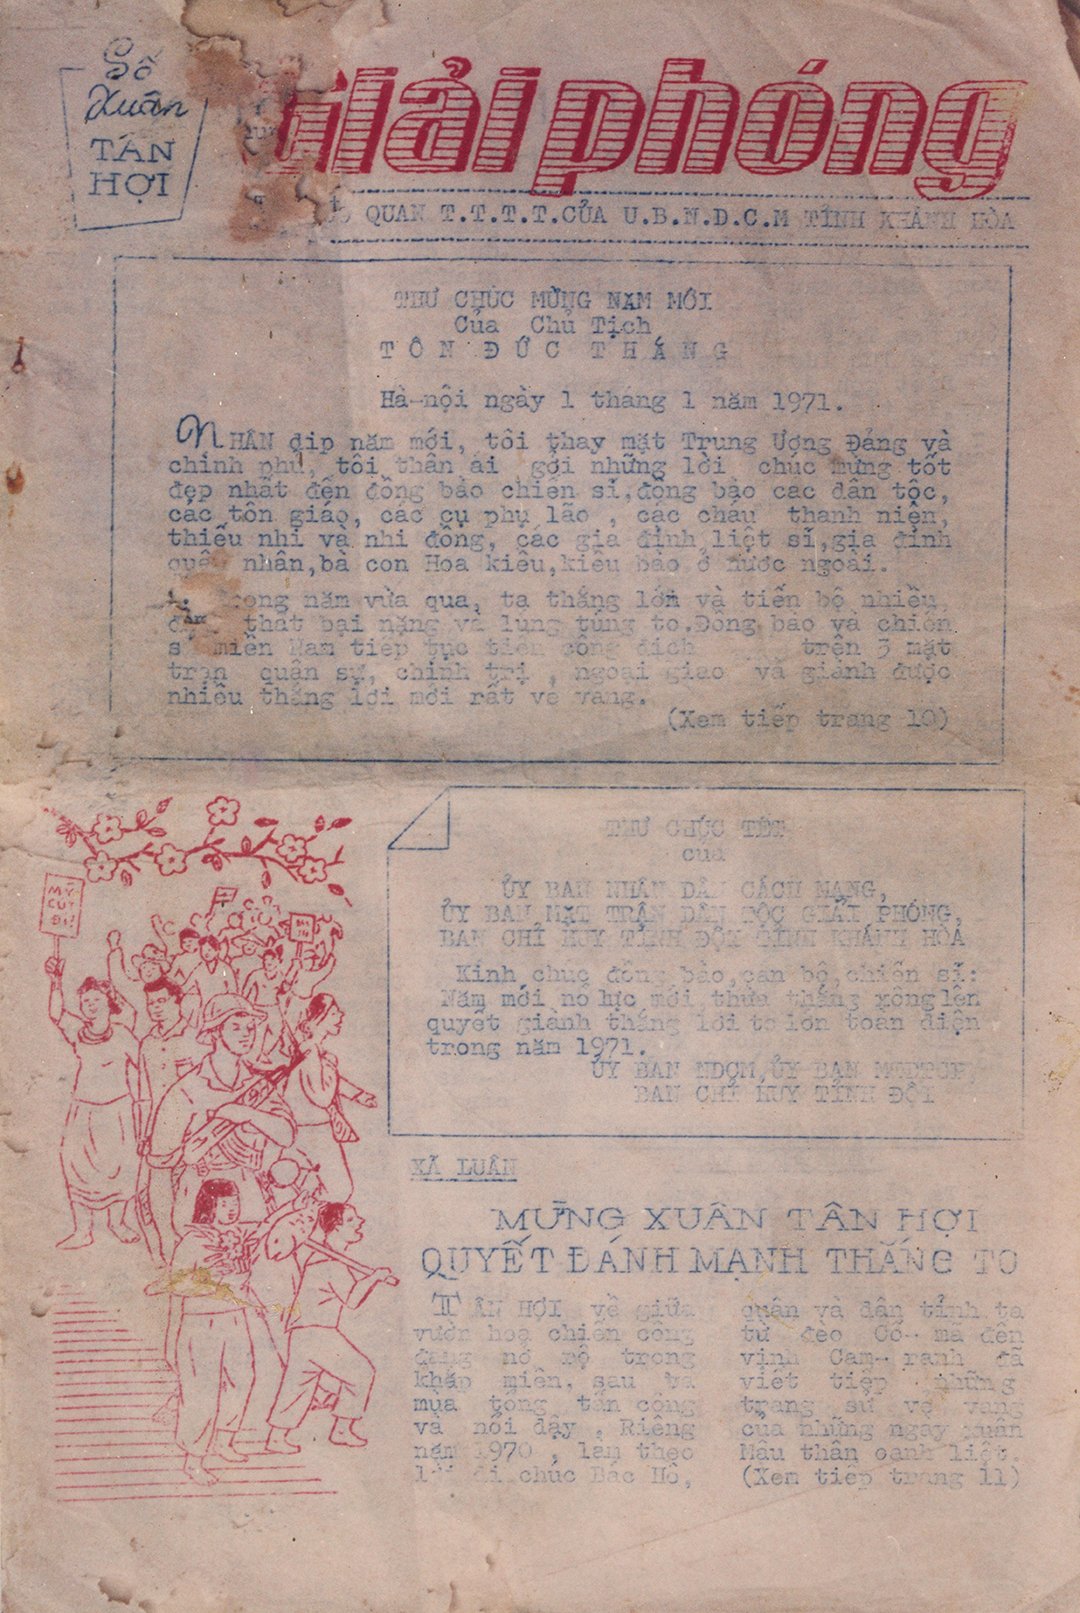 Số
Xuân
TÂN
HỢI
Giải phóng
QUAN T.T.T.T.CỦA U.B.N.D.C.M TỈNH KHÁNH HÒA
THƯ CHÚC MỪNG NĂM MỚI
Của Chủ Tịch
TÔN ĐỨC THẮNG
Hà-nội ngày 1 tháng 1 năm 1971.
NHÂN dịp năm mới, tôi thay mặt Trung Ương Đảng và
chính phủ, tôi thân ái gởi những lời chúc mừng tốt
đẹp nhất đến đồng bào chiến sĩ, đồng bào các dân tộc,
các tôn giáo, các cụ phụ lão, các cháu thanh niên,
thiếu nhi và nhi đồng, các gia đình liệt sĩ, gia đình
quân nhân, bà con Hoa kiều, kiều bào ở nước ngoài.
Trong năm vừa qua, ta thắng lớn và tiến bộ nhiều,
thất bại nặng và lúng túng to. Đồng bào và chiến
sĩ miền Nam tiếp tục tiến công địch trên 3 mặt
trận quân sự, chính trị, ngoại giao và giành được
nhiều thắng lợi mới rất vẻ vang.
(Xem tiếp trang 10)
MỸ
CÚT
ĐI!
THƯ CHÚC TẾT
của
ỦY BAN NHÂN DÂN CÁCH MẠNG,
ỦY BAN MẶT TRẬN DÂN TỘC GIẢI PHÓNG,
BAN CHỈ HUY TỈNH ĐỘI TỈNH KHÁNH HÒA
Kính chúc đồng bào, cán bộ, chiến sĩ:
Năm mới nỗ lực mới thừa thắng xông lên
quyết giành thắng lợi to lớn toàn diện
trong năm 1971.
ỦY BAN NDCM, ỦY BAN MTDTGP
BAN CHỈ HUY TỈNH ĐỘI
XÃ LUẬN
MỪNG XUÂN TÂN HỢI
QUYẾT ĐÁNH MẠNH THẮNG TO
TÂN HỢI về giữa
vườn hoa chiến công
đang nở rộ trong
khắp miền, sau ba
mùa tổng tấn công
và nổi dậy. Riêng
năm 1970, làm theo
lời di chúc Bác Hồ,
quân và dân tỉnh ta
từ đèo Cổ-mã đến
vịnh Cam-ranh đã
viết tiếp những
trang sử vẻ vang
của những ngày xuân
Mậu thân oanh liệt.
(Xem tiếp trang 11)